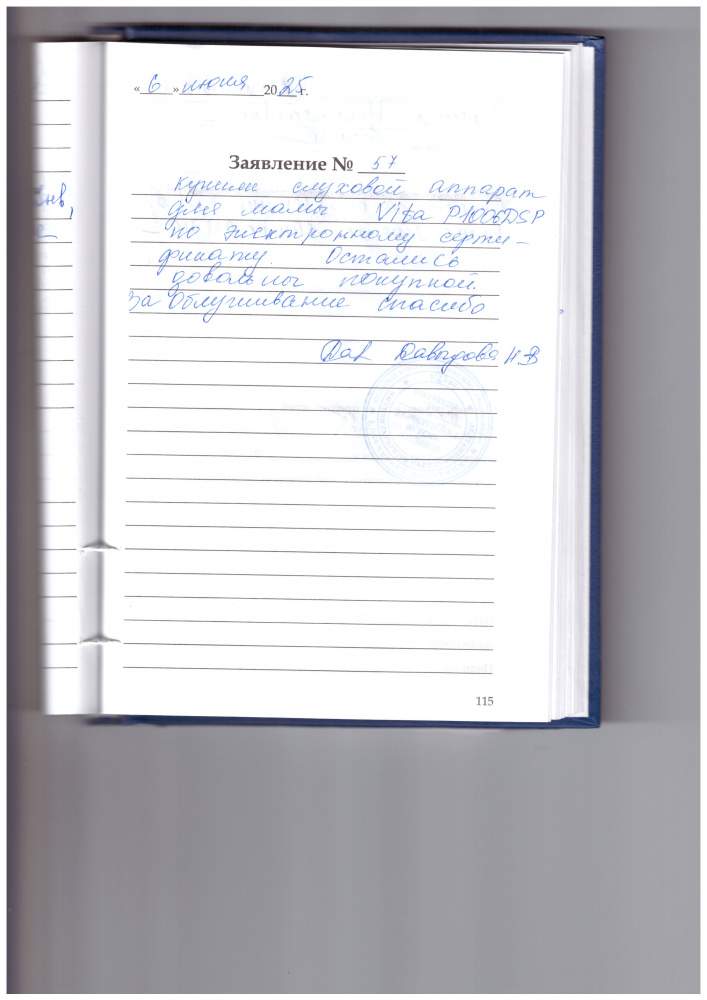 « 6 » июня 2025 г.
Заявление № 57
купили слуховой аппарат
для мамы Vita P1006DSP
по электронному серти-
фикату. Остались
довольны покупкой.
За облуживание спасибо
Давыдова Н В
115